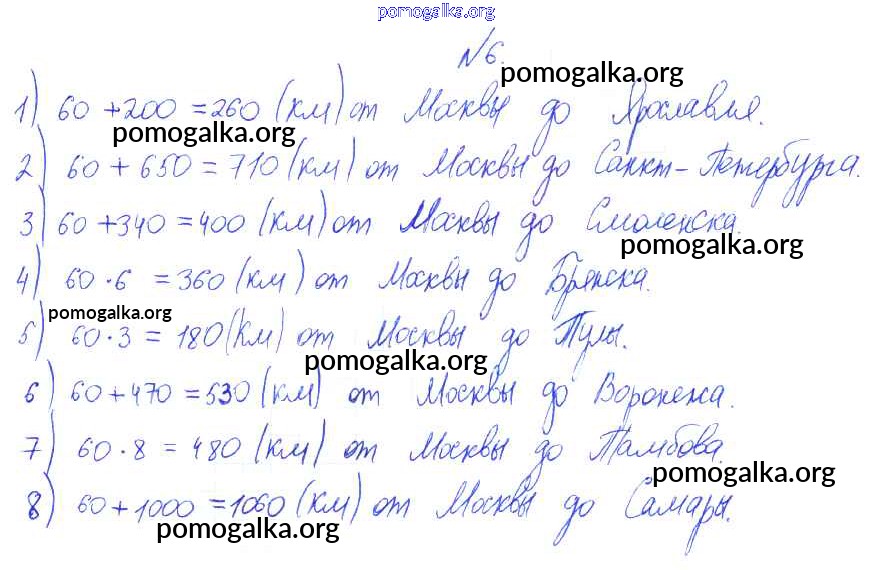 pomogalka.org
№6.
pomogalka.org
1) 60 + 200 = 260 (км) от Москвы до Ярославля.
pomogalka.org
2) 60 + 650 = 710 (км) от Москвы до Санкт-Петербурга.
3) 60 + 340 = 400 (км) от Москвы до Смоленска.
pomogalka.org
4) 60 · 6 = 360 (км) от Москвы до Брянска.
pomogalka.org
5) 60 · 3 = 180 (км) от Москвы до Тулы.
pomogalka.org
6) 60 + 470 = 530 (км) от Москвы до Воронежа.
7) 60 · 8 = 480 (км) от Москвы до Тамбова.
pomogalka.org
8) 60 + 1000 = 1060 (км) от Москвы до Самары.
pomogalka.org